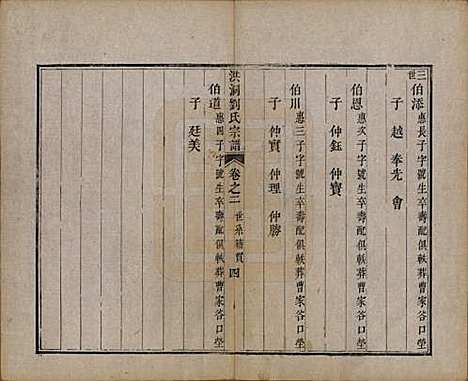 三世
伯添惠長子字號生卒壽配俱軼葬曹家谷口塋
子 越 奉先 會
伯恩惠次子字號生卒壽配俱軼葬曹家谷口塋
子 仲鈺 仲寶
伯川惠三子字號生卒壽配俱軼葬曹家谷口塋
子 仲實 仲理 仲勝
洪洞劉氏宗譜 卷之二 世系籍貫 四
伯道惠四子字號生卒壽配俱軼葬曹家谷口塋
子 廷美